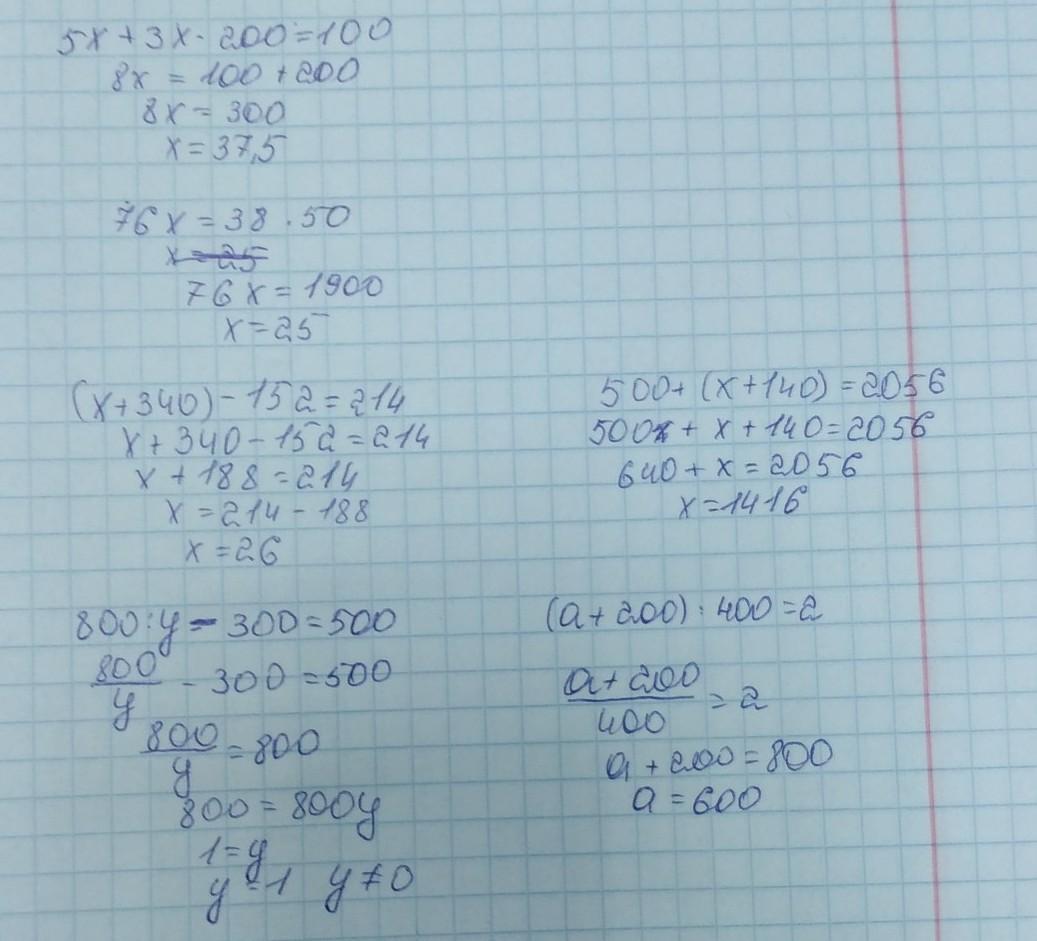 5x + 3x - 200 = 100
8x = 100 + 200
8x = 300
x = 37,5
76x = 38 · 50
x = 25
76x = 1900
x = 25
(x + 340) - 152 = 214
x + 340 - 152 = 214
x + 188 = 214
x = 214 - 188
x = 26
500 + (x + 140) = 2056
500 + x + 140 = 2056
640 + x = 2056
x = 1416
800 : y - 300 = 500
800/y - 300 = 500
800/y = 800
800 = 800y
1 = y
y = 1 y ≠ 0
(a + 200) : 400 = 2
a + 200/400 = 2
a + 200 = 800
a = 600